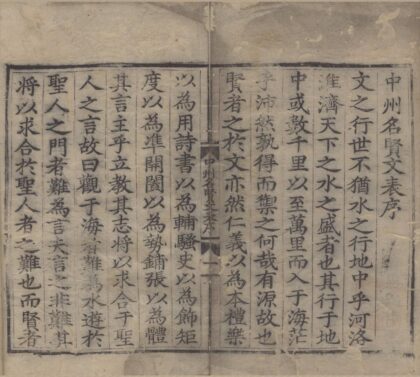 中州名賢文表序
文之行世不猶水之行地中乎河洛
淮濟天下之水之盛者也其行于地
中或數千里以至萬里而入于海茫
乎沛然孰得而禦之何哉有源故也
賢者之於文亦然仁義以為本禮樂
中州名賢文表序
以為用詩書以為輔騷史以為飾矩
度以為準開闔以為勢鋪張以為體
其言主乎立教其志將以求合于聖
人之言故曰觀于海者難為水遊於
聖人之門者難為言夫言之非難其
將以求合於聖人者之難也而賢者